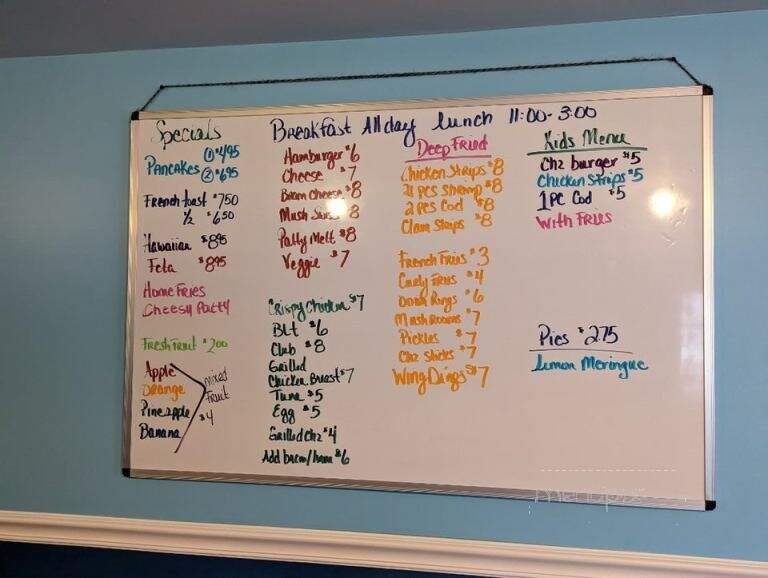 Breakfast All day Lunch 11:00-3:00
Specials
Pancakes ① $4.95
② $6.95
French toast $7.50
1/2 $6.50
Hawaiian $8.95
Feta $8.95
Home Fries
Cheesy Patty
Fresh fruit $2.00
Apple
Orange
Pineapple
Banana
mixed
Fruit
$4
Hamburger $6
Cheese $7
Bacon Cheese $8
Mush Swiss $8
Patty Melt $8
Veggie $7
Crispy Chicken $7
Blt $6
Club $8
Grilled
Chicken Breast $7
Tuna $5
Egg $5
Grilled chz $4
Add bacon/ham $6
Deep Fried
Chicken Strips $8
21 pcs shrimp $8
2 pcs Cod $8
Clam Strips $8
French Fries $3
Curly Fries $4
Onion Rings $6
Mushrooms $7
Pickles $7
Chz Sticks $7
Wing Dings $7
Kids Menu
Chz burger $5
Chicken Strips $5
1 PC Cod $5
With Fries
Pies $2.75
Lemon Meringue